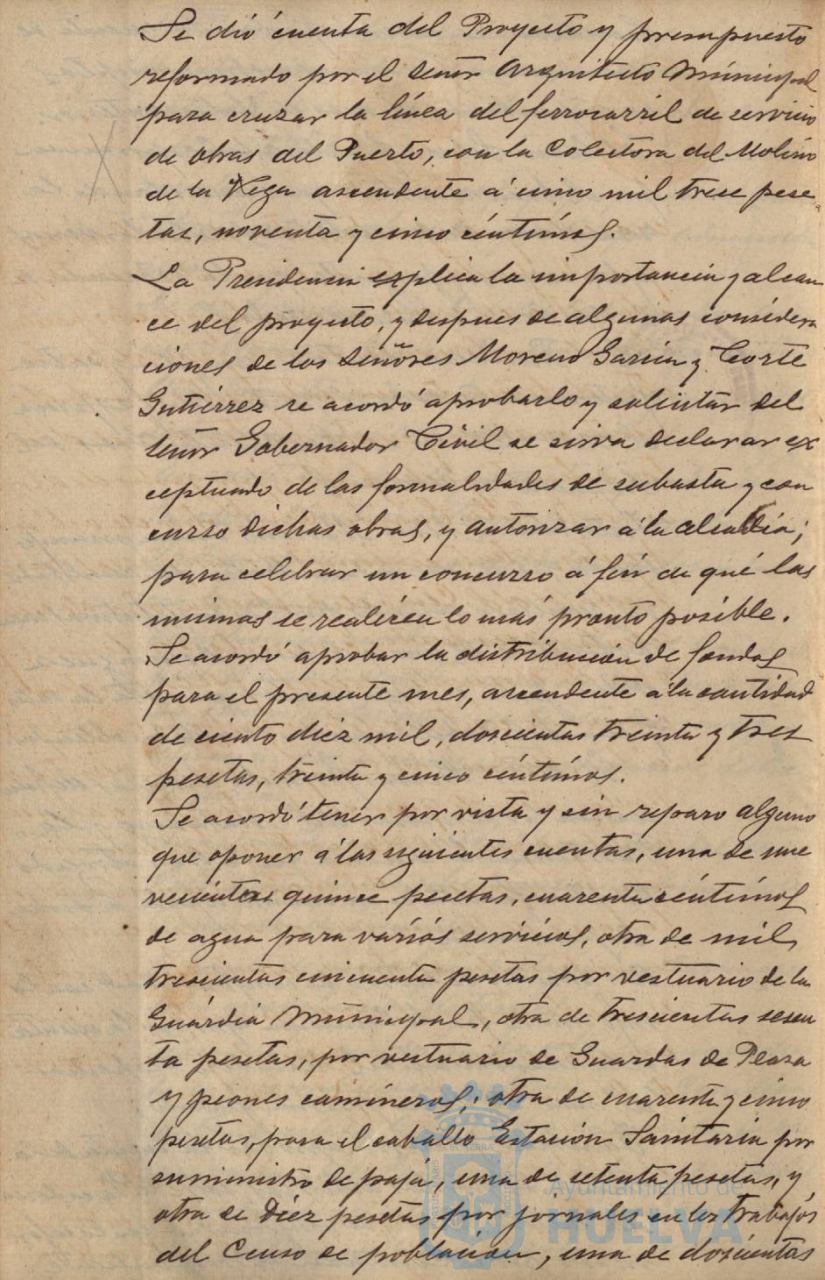 Se dió cuenta del Proyecto y presupuesto
reformado por el señor Arquitecto Municipal
para cruzar la línea del ferrocarril de servicio
de obras del Puerto, con la Colectora del Molino
de la Vega ascendente á cinco mil trece pese-
tas, noventa y cinco céntimos.
La Presidencia explica la importancia y alcan
ce del proyecto, y despues de algunas considera
ciones de los señores Moreno García y Corte
Gutiérrez se acordó aprobarlo y solicitar del
señor Gobernador Civil se sirva declarar ex
ceptuado de las formalidades de subasta y con
curso dichas obras, y autorizar á la alcaldía;
para celebrar un concurso á fin de qué las
mismas se realicen lo más pronto posible.
Se acordó aprobar la distribución de fondos
para el presente mes, ascendente á la cantidad
de ciento diez mil, doscientas treinta y tres
pesetas, treinta y cinco céntimos.
Se acordó tener por vista y sin reparo alguno
que oponer á las siguientes cuentas, una de nue
vecientas quince pesetas, cuarenta céntimos
de agua para varios servicios, otra de mil
trescientas cincuenta pesetas por vestuario de la
Guardia Municipal, otra de trescientas sesen
ta pesetas, por vestuario de Guardas de Plaza
y peones camineros; otra de cuarenta y cinco
pesetas, para el caballo Estación Sanitaria por
suministro de paja, una de setenta pesetas, y
otra de diez pesetas por jornales en los trabajos
del Censo de población, una de doscientas
Ayuntamiento de
HUELVA